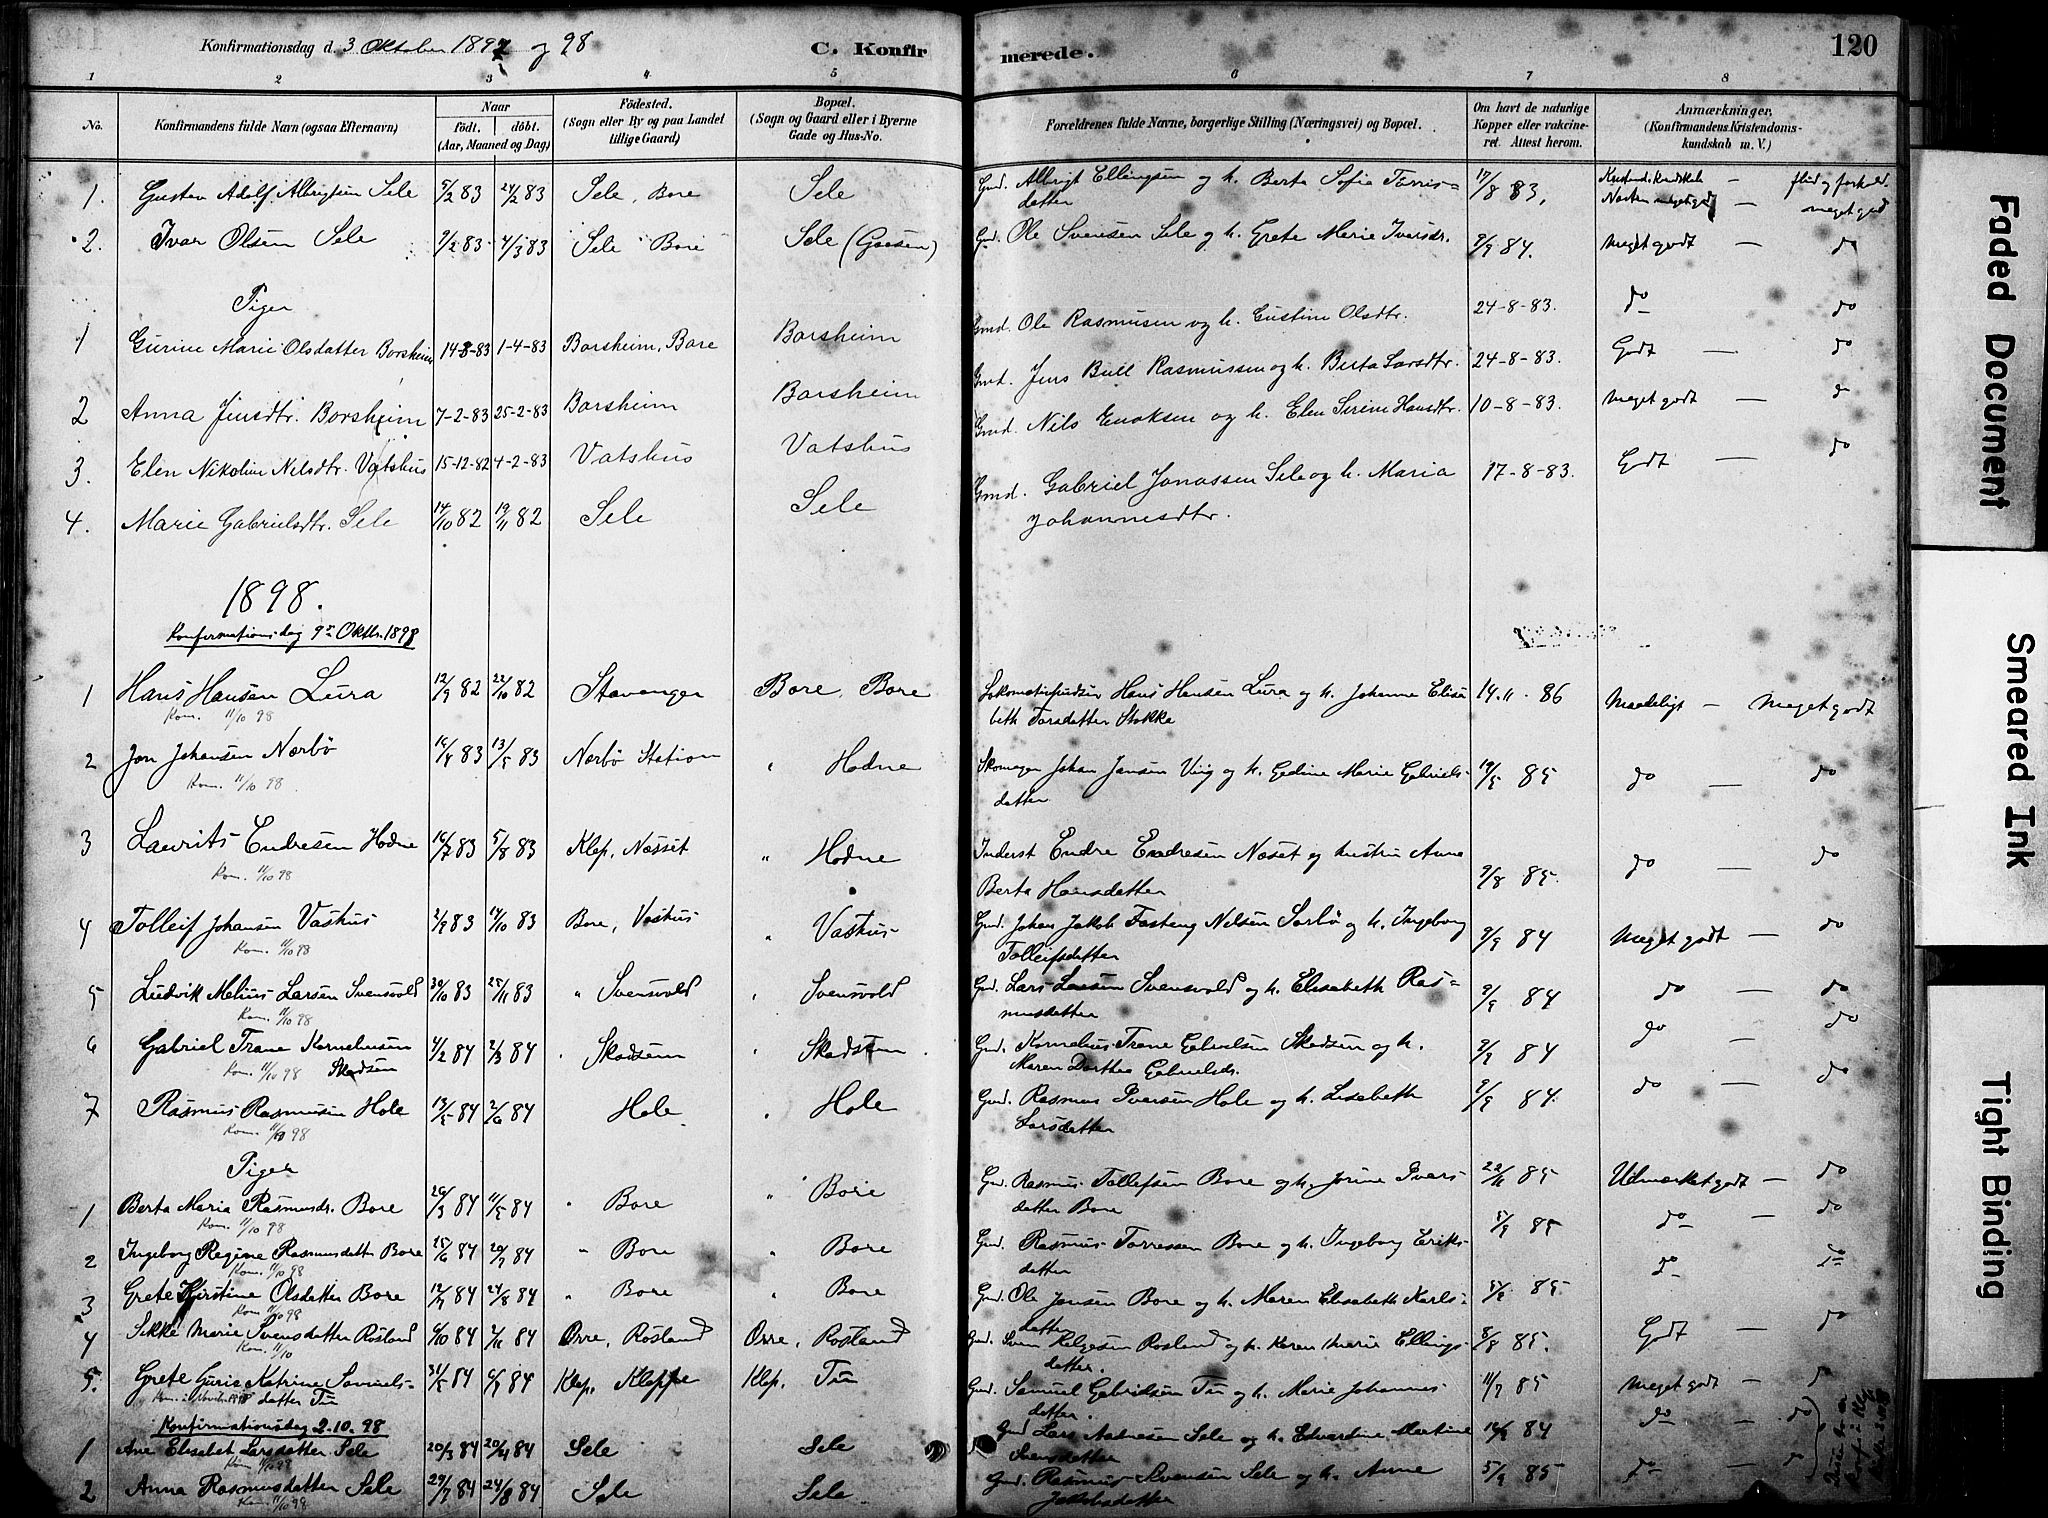 Konfirmationsdag d. 3 Oktober 1897 og 98
C. Konfirmerede.
120
1 2 3 4 5 6 7 8
No.
Konfirmandens fulde Navn (ogsaa Efternavn)
Naar
födt. döbt.
(Aar, Maaned og Dag)
Födested.
(Sogn eller By og paa Landet
tillige Gaard)
Bopæl.
(Sogn og Gaard eller i Byerne
Gade og Hus-No.
Forældrenes fulde Navne, borgerlige Stilling (Næringsvei) og Bopæl.
Om havt de naturlige
Kopper eller vakcine-
ret. Attest herom.
Anmærkninger,
(Konfirmandens Kristendoms-
kundskab m. V.)
1. Gustav Adolf Albrigtsen Sele 5/2 83 24/2 83 Sele, Bore Sele Gmd. Albrigt Ellingsen og h. Berta Sofia Torris= 17/8 83,
datter meget godt
2. Ivar Olsen Sele 9/2 83 4/3 83 Sele Bore Sele (Gaasen) Gmd. Ole Svensen Sele og h. Grete Marie Ivarsdr. 9/9 84. Meget godt — do
Piger
1 Gurine Marie Olsdatter Borsheim 14-3-83 1-4-83 Borsheim, Bore Borsheim Gmd. Ole Rasmusen og h. Gustine Olsdtr. 24-8-83. do do
2 Anna Jensdtr. Borsheim 7-2-83 25-2-83 Borsheim Borsheim Gmd. Jens Bull Rasmussen og h. Berta Larsdtr. 24-8-83. Godt — do
3. Elen Nikoline Nilsdtr. Vatshus 15-12-82 4-2-83 Vatshus Vatshus Gmd. Nils Enoksen og h. Elen Serine Hansdtr. 10-8-83. Meget godt — do
4. Marie Gabrielsdtr. Sele 14/10 82 19/11 82 Sele Sele Gmd. Gabriel Jonassen Sele og h. Maria 17-8-83. Godt — do
Johannesdtr.
1898.
Konfirmationsdag 9de Oktb. 1898
1 Hans Hansen Lura 12/9 82 22/10 82 Stavanger Bore, Bore Hans Hansen Lura og h. Johanne Elisa 14.11.86 Maadeligt — Meget godt
Kom. 11/10 98 beth Torsdatter Stokka
2 Jon Johansen Nærbö 16/4 83 13/5 83 Nærbö Station " Hodne Skomager Johan Jansen Vig og h. Gedine Marie Gabriels- 19/5 85 do — do
Kom. 11/10 98 datter
3 Laurits Endresen Hodne 16/7 83 5/8 83 Klep, Næsset " Hodne Inderst Endre Endresen Næset og hustru Anna 9/8 85. do — do
Kom. 11/10 98 Berta Hansdatter
4 Tolleif Johansen Vashus 2/9 83 14/10 83 Bore, Vashus " Vashus Gmd. Johan Jakob Fasteng Nilsen Sørbö og h. Ingeborg 9/9 84 Meget godt — do
Kom. 11/10 98 Tolleifsdatter
5 Ludvik Melius Larsen Svensvold 30/10 83 25/11 83 " Svensvold " Svensvold Gmd. Lars Larsen Svensvold og h. Elisabeth Ras= 9/9 84 do — do
Kom. 11/10 98 musdatter
6 Gabriel Trane Korneliusen 4/2 84 2/3 84 " Skadsem " Skadsem Gmd. Kornelius Trane Gabrielsen Skadsem og h. 9/9 84 do — do
Kom. 11/10 98 Skadsem Maren Dorthea Gabrielsdr.
7 Rasmus Rasmusen Hole 13/5 84 2/6 84 Hole " Hole Gmd. Rasmus Iversen Hole og h. Lisabeth 9/9 84. do — do
Kom. 11/10 98 Larsdatter
Piger
1 Berta Maria Rasmusdr. Bore 26/3 84 11/5 84 " Bore " Bore Gmd. Rasmus Tollefsen Bore og h. Jorine Ivars 22/11 85 Udmærket godt — do
Kom. 11/10 98 datter Bore
2 Ingeborg Regine Rasmusdatter Bore 25/6 84 20/7 84 " Bore " Bore Gmd. Rasmus Torressen Bore og h. Ingeborg Eriks- 5/9 85 do — do
Kom. 11/10 98 datter
3 Grete Kirstine Olsdatter Bore 12/7 84 24/8 84 " Bore " Bore Gmd. Ole Jensen Bore og h. Maren Elisabeth Karls- 5/9 85 do do
Kom 11/10 98 datter
4 Sikke Marie Svensdatter Rosland 6/10 84 2/11 84 Orre, Rosland Orre, Rosland Gmd. Sven Helgesen Rosland og h. Karen Marie Ellings- 8/8 85. Godt — do
Kom. 11/10 datter.
5. Grete Gurie Katrine Samuels- 31/5 84 6/7 84 Klep, Kleppe Klep, Tu Gmd. Samuel Gabrielsen Tu og h. Marie Johannes 11/7 85 Meget godt — do
datter Tu datter.
Konfirmationsdag 2-10.98
1 Ane Elisabet Larsdatter Sele 20/3 84 20/4 84 Sele Sele Gmd Lars Sele og h. Edvardine Martine 84 do — do
Kom 11/10 98 Svensdatter
2 Anna Rasmusdatter Sele 29/7 84 24/8 84 Sele Sele Gmd. Rasmus Svensen Sele og h. Anne 5/9 85 do — do
Kom. 11/10 98 Jakobsdatter
Faded Document
Smeared Ink
Tight Binding